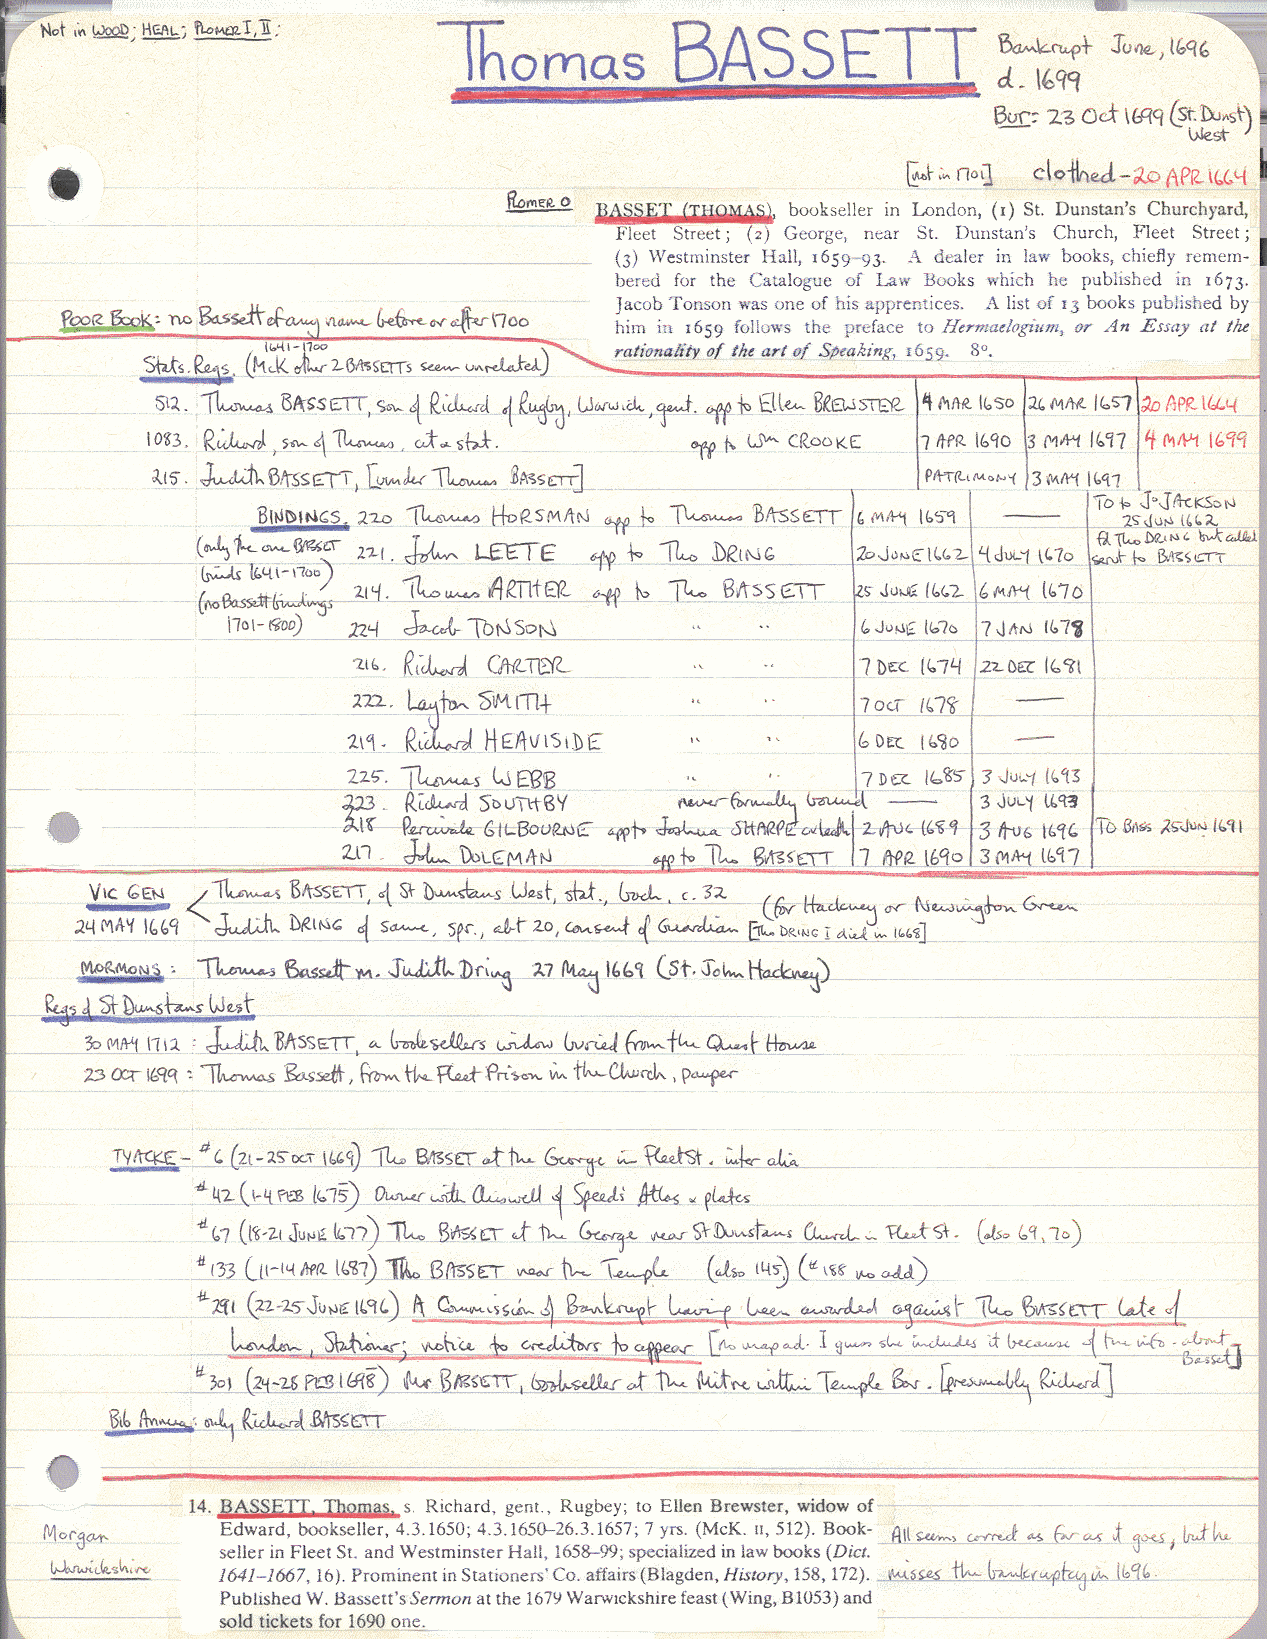 Not in WOOD; HEAL; PLOMER I, II;
Thomas BASSETT
Bankrupt June, 1696
d. 1699
Bur: 23 Oct 1699 (St. Dunst)
West
[not in 1701] clothed - 20 APR 1664
PLOMER O
BASSET (THOMAS), bookseller in London, (1) St. Dunstan's Churchyard,
Fleet Street; (2) George, near St. Dunstan's Church, Fleet Street;
(3) Westminster Hall, 1659-93. A dealer in law books, chiefly remem-
bered for the Catalogue of Law Books which he published in 1673.
Jacob Tonson was one of his apprentices. A list of 13 books published by
him in 1659 follows the preface to Hermaelogium, or An Essay at the
rationality of the art of Speaking, 1659. 8°.
POOR BOOK: no Bassett of any name before or after 1700
1641-1700
Stats. Regs. (McK other 2 BASSETTs seem unrelated)
512. Thomas BASSETT, son of Richard of Rugby, Warwick, gent. app to Ellen BREWSTER 4 MAR 1650 26 MAR 1657 20 APR 1664
1083. Richard, son of Thomas, cit & stat. app to Wm CROOKE 7 APR 1690 3 MAY 1697 4 MAY 1699
215. Judith BASSETT, [under Thomas BASSETT] PATRIMONY 3 MAY 1697
BINDINGS. 220 Thomas HORSMAN app to Thomas BASSETT 6 MAY 1659 — TO to Jo JACKSON
25 JUN 1662
(only the one BASSET
binds 1641-1700)
221. John LEETE app to Tho DRING 20 JUNE 1662 4 JULY 1670 fd Tho DRING but called
servt to BASSETT
214. Thomas ARTHER app to Tho BASSETT 25 JUNE 1662 6 MAY 1670
(no Bassett bindings
1701-1800)
224 Jacob TONSON " " 6 JUNE 1670 7 JAN 1678
216. Richard CARTER " " 7 DEC 1674 22 DEC 1681
222. Layton SMITH " " 7 OCT 1678 —
219. Richard HEAVISIDE " " 6 DEC 1680 —
225. Thomas WEBB " " 7 DEC 1685 3 JULY 1693
223. Richard SOUTHBY never formally bound — 3 JULY 1693
218 Percivale GILBOURNE app to Joshua SHARPE 2 AUG 1689 3 AUG 1696 TO BASS 25 JUN 1691
217. John DOLEMAN app to Tho BASSETT 7 APR 1690 3 MAY 1697
VIC GEN Thomas BASSETT, of St Dunstans West, stat., bach, c. 32
(for Hackney or Newington Green
24 MAY 1669 Judith DRING of same, spr., abt 20, consent of Guardian [Tho DRING I died in 1668]
MORMONS: Thomas Bassett m. Judith Dring 27 May 1669 (St. John Hackney)
Regs of St Dunstans West
30 MAY 1712: Judith BASSETT, a booksellers widow buried from the Quest House
23 OCT 1699: Thomas Bassett, from the Fleet Prison in the Church, pauper
TYACKE - #6 (21-25 OCT 1669) Tho BASSET at the George in Fleet St. inter alia
#42 (1-4 FEB 1675) Owner with Chiswell of Speed's Atlas & plates
#67 (18-21 JUNE 1677) Tho BASSET at the George near St Dunstans Church in Fleet St. (also 69, 70)
#133 (11-14 APR 1687) Tho BASSET near the Temple (also 145) (#188 no add)
#291 (22-25 JUNE 1696) A Commission of Bankrupt having been awarded against Tho BASSETT late of
London, Stationer; notice to creditors to appear [no map ad. I guess she includes it because of the info - about
Basset]
#301 (24-28 FEB 1698) Mr BASSETT, bookseller at the Mitre within Temple Bar. [presumably Richard]
Bib Annexa: only Richard BASSETT
14. BASSETT, Thomas, s. Richard, gent., Rugbey; to Ellen Brewster, widow of
Edward, bookseller, 4.3.1650; 4.3.1650-26.3.1657; 7 yrs. (McK. II, 512). Book-
seller in Fleet St. and Westminster Hall, 1658-99; specialized in law books (Dict.
1641-1667, 16). Prominent in Stationers' Co. affairs (Blagden, History, 158, 172).
Published W. Bassett's Sermon at the 1679 Warwickshire feast (Wing, B1053) and
sold tickets for 1690 one.
Morgan
Warwickshire
All seems correct as far as it goes, but he
misses the bankruptcy in 1696.